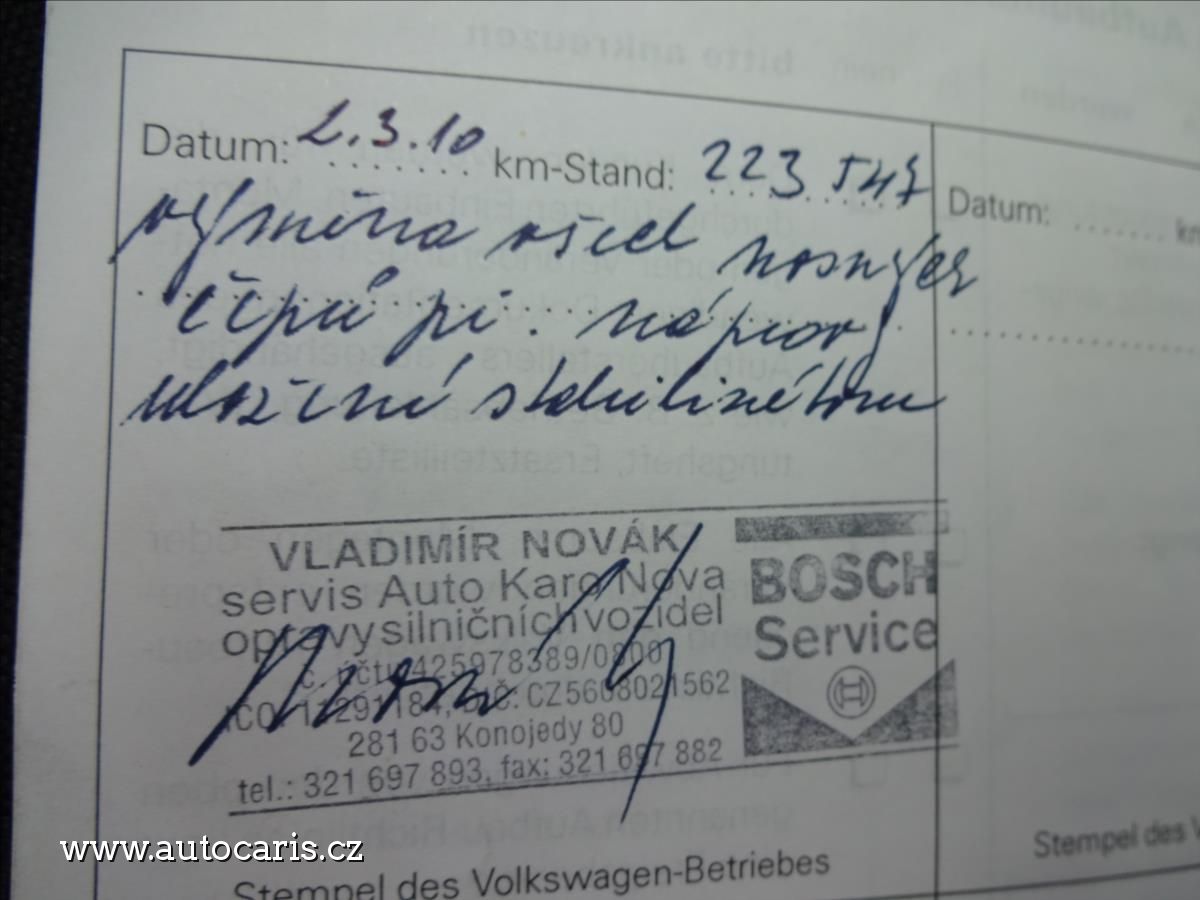 Datum: 2.3.10 km-Stand: 223 547
výměna všech nosných
čepů př. nápravy
uložení stabilizátoru
VLADIMÍR NOVÁK
servis Auto Karo Nova
opravy silničních vozidel
č. účtu 425978389/0800
IČO: 11291184, DIČ: CZ5608021562
281 63 Konojedy 80
tel.: 321 697 893, fax: 321 697 882
BOSCH
Service
Stempel des Volkswagen-Betriebes
Datum:
Stempel des
www.autocaris.cz